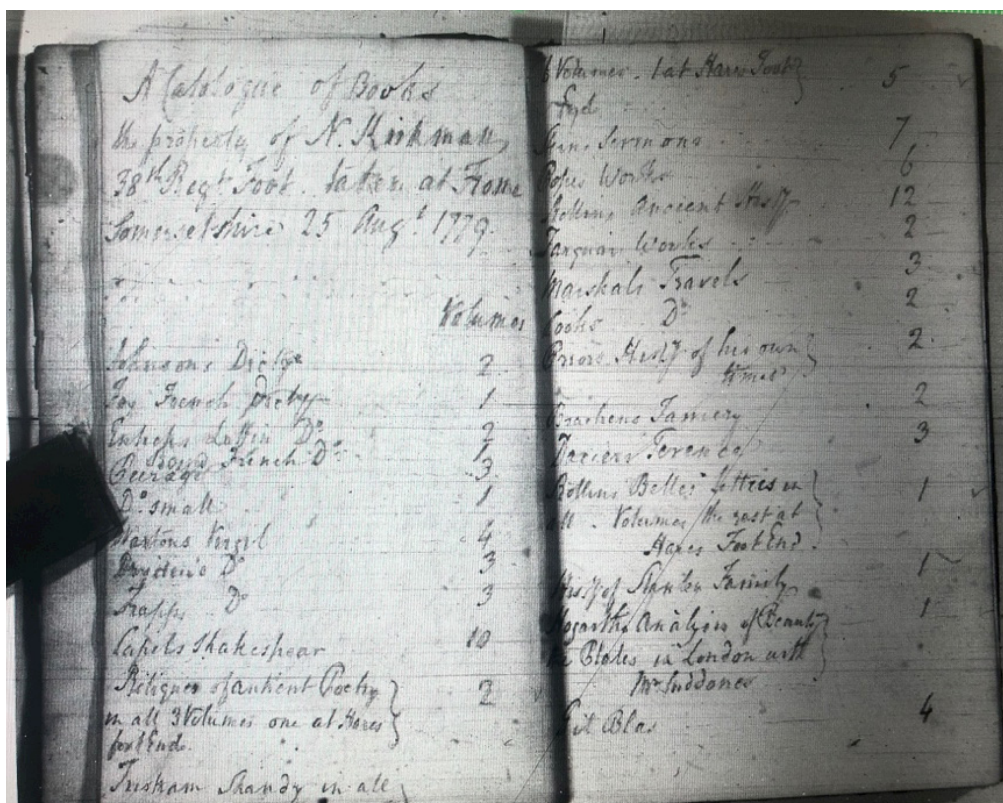 A Catalogue of Books
the property of N. Kirkman
38th Regt Foot. taken at Frome
Somersetshire 25 Augt 1779.
Volumes
Johnsons Dicty 2
French Dicty 1
Enticks Lattin Do 2
Boyd French Do 1
Peerage 3
Do small 1
Wartons Virgil 4
Drydens Do 3
Trapps Do 3
Capels Shakespear 10
Reliques of antient Poetry 2
in all 3 Volumes one at Hares
foot End.
Tristram Shandy in all
6 Volumes. 1 at Hares Foot 5
End
Sermons 7
Popes Works 6
Rollins Ancient Histy 12
Farquar Works 2
Marshals Travels 3
Cooks Do 2
Priors Histy of his own 2
times
Brackens Farriery 2
Daciers Terence 3
Rollins Belles lettres in 1
all Volumes the rest at
Hares Foot End.
Histy of Family 1
Hogarths Analysis of Beauty 1
the Plates in London with
Mr Siddones
Gil Blas 4